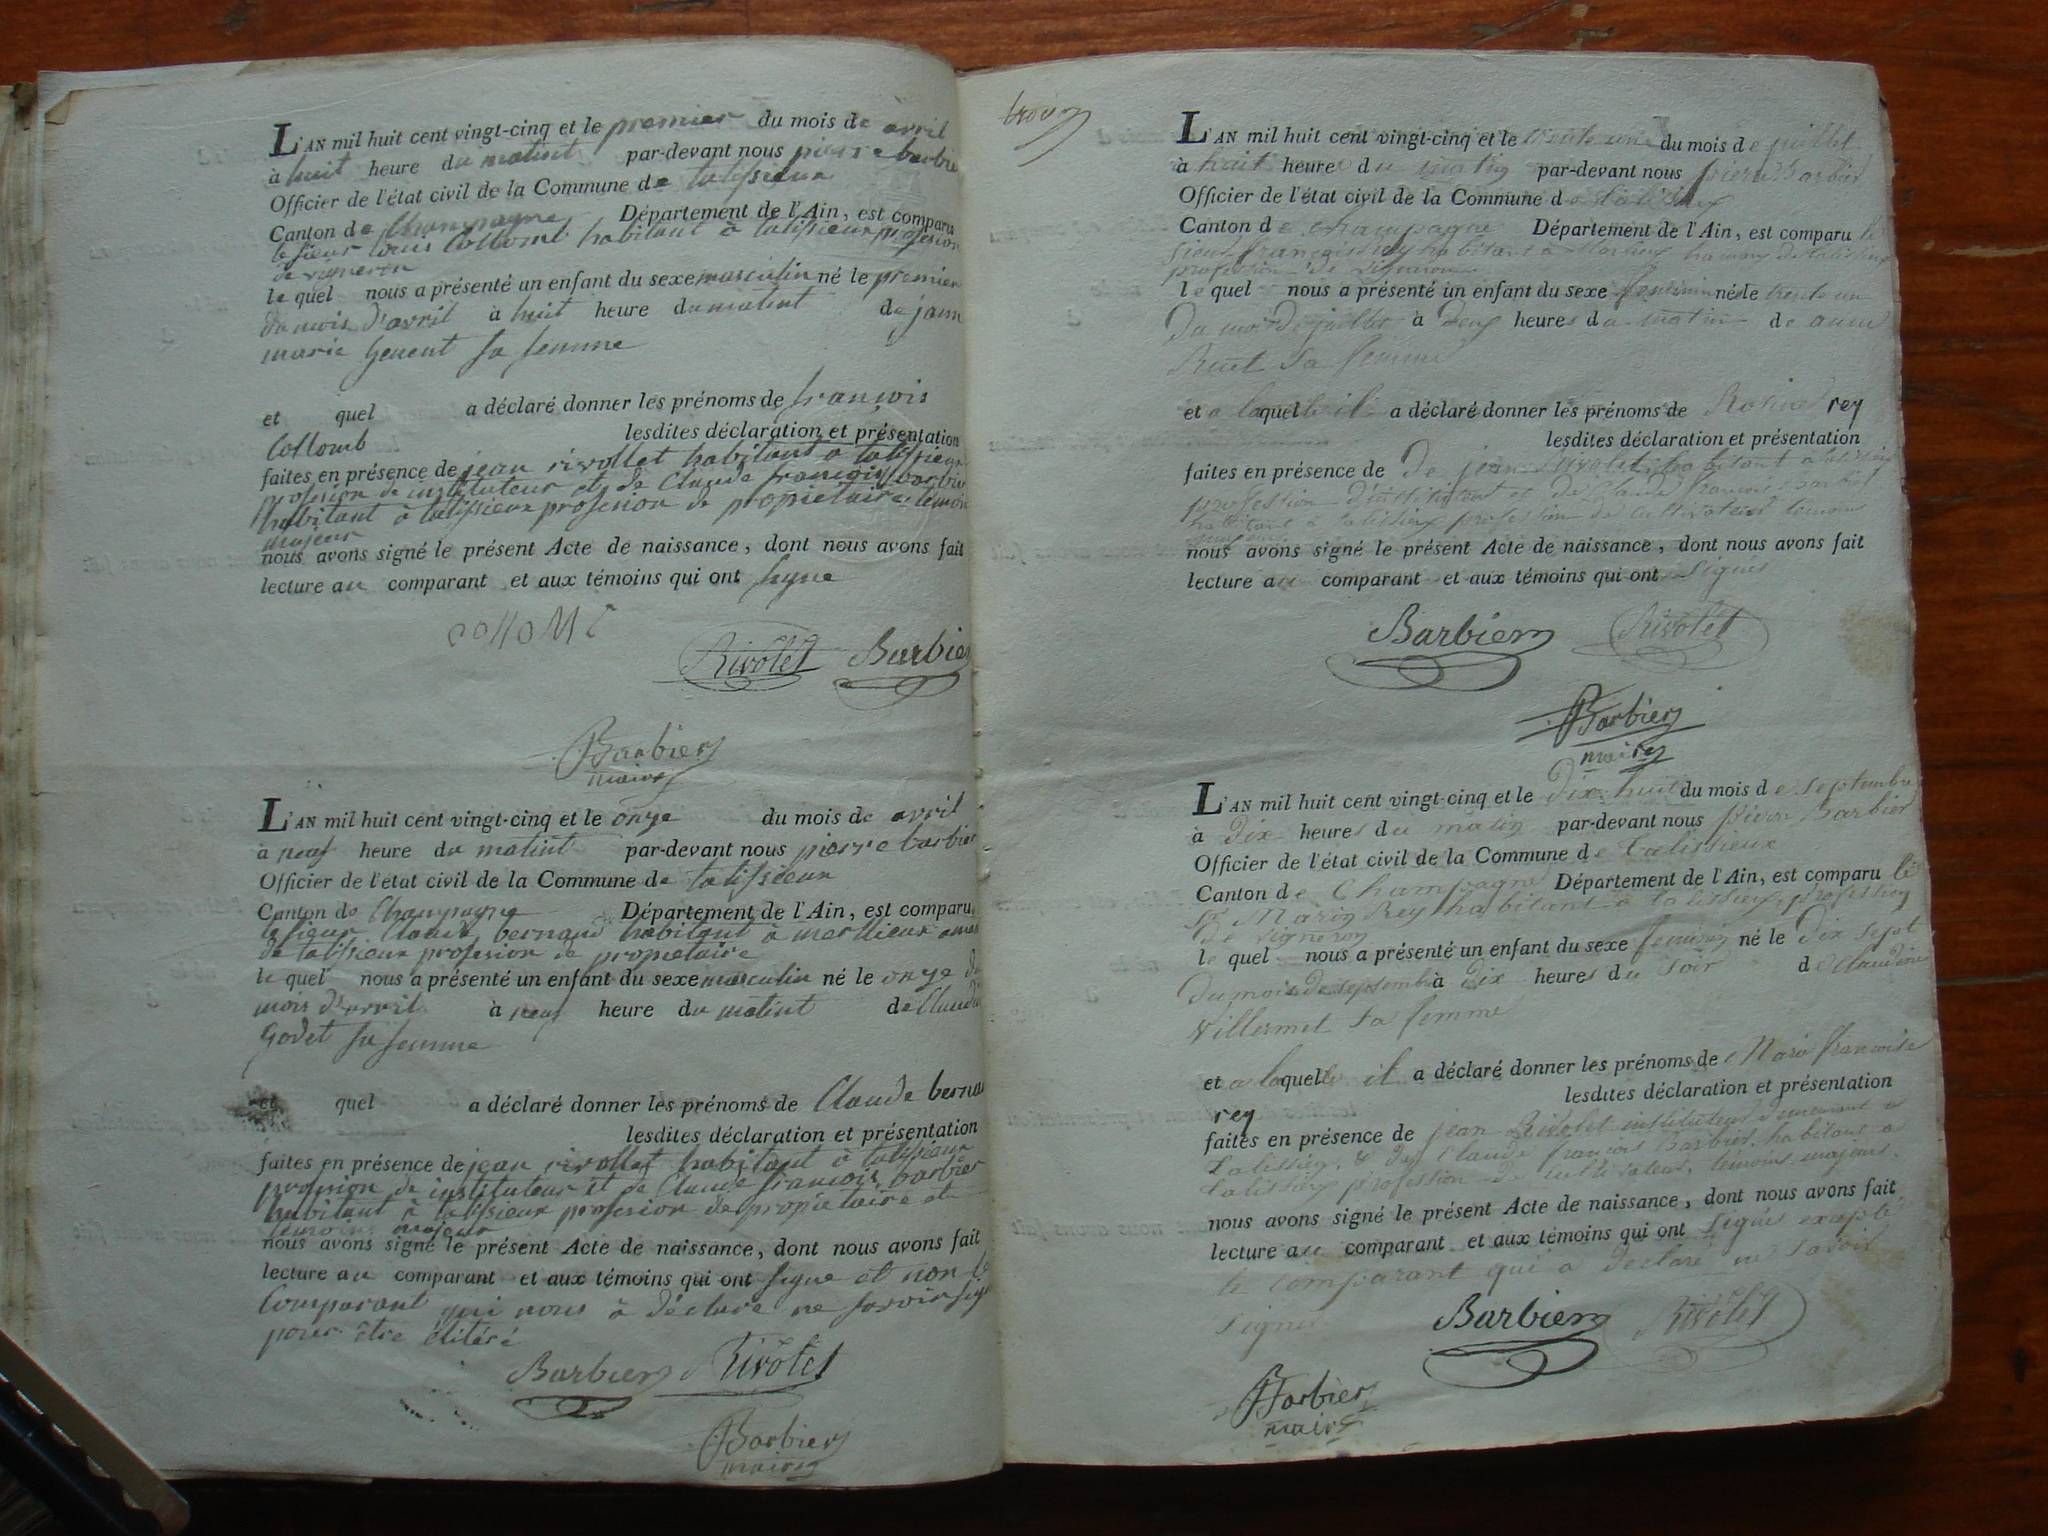 L'AN mil huit cent vingt-cinq et le premier du mois de avril
à huit heure du matint par-devant nous pierre barbie
Officier de l'état civil de la Commune de talissieux
Canton de Champagne Département de l'Ain, est comparu
le sieur louis Collomb habitant à talissieux profesion
de vigneron
le quel nous a présenté un enfant du sexe masculin né le premier
du mois d'avril à huit heure du matint de jann
marie genent sa femme
et quel a déclaré donner les prénoms de francois
Collomb lesdites déclaration et présentation
faites en présence de jean rivollet habitant à talissieux
profesion de instituteur et de Claude francois barbier
habitant à talissieux profesion de propietaire temoin
majeur
nous avons signé le présent Acte de naissance, dont nous avons fait
lecture au comparant et aux témoins qui ont signe
Rivolet Barbier
Barbier
maire
L'AN mil huit cent vingt-cinq et le onze du mois de avril
à neuf heure du matint par-devant nous pierre barbier
Officier de l'état civil de la Commune de talissieux
Canton de Champagne Département de l'Ain, est comparu
le sieur Claude bernard habitant à
de talissieux profesion de propietaire
le quel nous a présenté un enfant du sexe masculin né le onze du
mois d'avril à neuf heure du matint de Claudi
Godet sa femme
et quel a déclaré donner les prénoms de Claude berna
lesdites déclaration et présentation
faites en présence de jean rivollet habitant à talissieux
profesion de instituteur et de Claude francois barbier
habitant à talissieux profesion de propietaire
temoins majeur
nous avons signé le présent Acte de naissance, dont nous avons fait
lecture au comparant et aux témoins qui ont signe et non le
Comparant qui nous à déclare ne savoir signe
pour être
Barbier Rivolet
Barbier
maire
L'AN mil huit cent vingt-cinq et le trente une du mois de juillet
à huit heures du matin par-devant nous pierre Barbier
Officier de l'état civil de la Commune de talissieux
Canton de champagne Département de l'Ain, est comparu le
sieur françois Rey habitant à hameau de talissieux
profession de vigneron
le quel nous a présenté un enfant du sexe feminin né le trente un
Du mois de juillet à deux heures du matin de anne
sa femme
et a laquelle il a déclaré donner les prénoms de Rosine rey
lesdites déclaration et présentation
faites en présence de De jean Rivolet habitant à talissieux
profession d'instituteur et de Claude françois barbier
habitant à talissieux profession de cultivateur temoins
nous avons signé le présent Acte de naissance, dont nous avons fait
lecture au comparant et aux témoins qui ont signés
Barbier Rivolet
Barbier
maire
L'AN mil huit cent vingt-cinq et le dix huit du mois de septembre
à Dix heures du matin par-devant nous pierre Barbier
Officier de l'état civil de la Commune de talissieux
Canton de Champagne Département de l'Ain, est comparu le
Sr Marin Rey habitant à talissieux, profession
de vigneron
le quel nous a présenté un enfant du sexe feminin né le Dix sept
Du mois de septembre à dix heures du soir de claudine
Villermet sa femme
et a laquelle il a déclaré donner les prénoms de Marie françoise
rey lesdites déclaration et présentation
faites en présence de jean Rivolet instituteur demeurant à
talissieux, & du Sr Claude françois Barbier, habitant à
talissieux profession de cultivateur, témoins majeurs,
nous avons signé le présent Acte de naissance, dont nous avons fait
lecture au comparant et aux témoins qui ont signés excepté
le comparant qui a déclaré ne savoir
signer
Barbier Rivolet
Barbier
maire